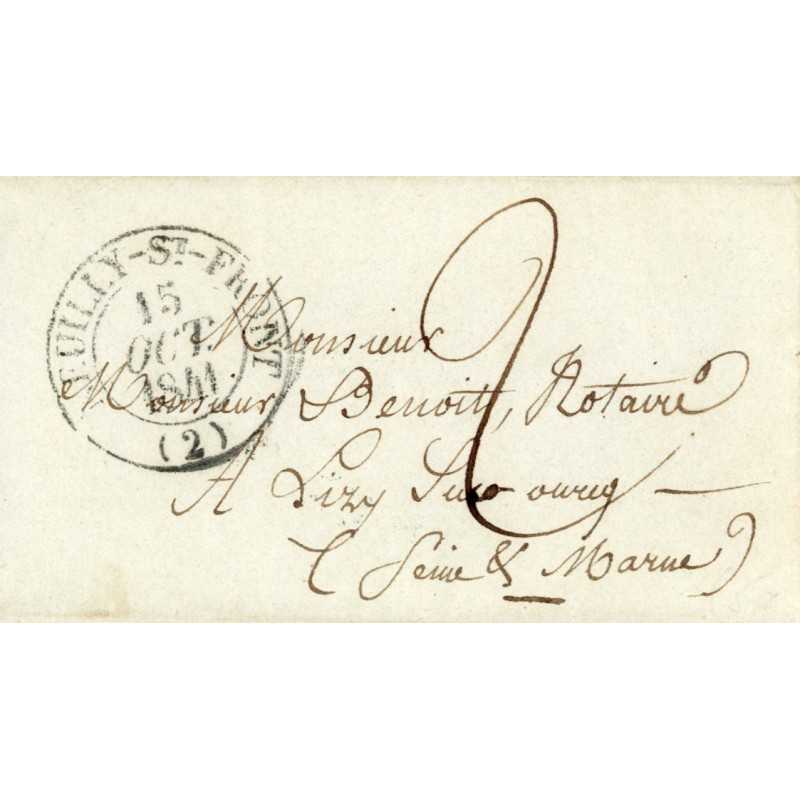 NEUILLY-ST-FRONT
15
OCT.
1841
(2)
2
Monsieur
Monsieur Benoit, Notaire
A Lizy Sur ourcq
(Seine & Marne)